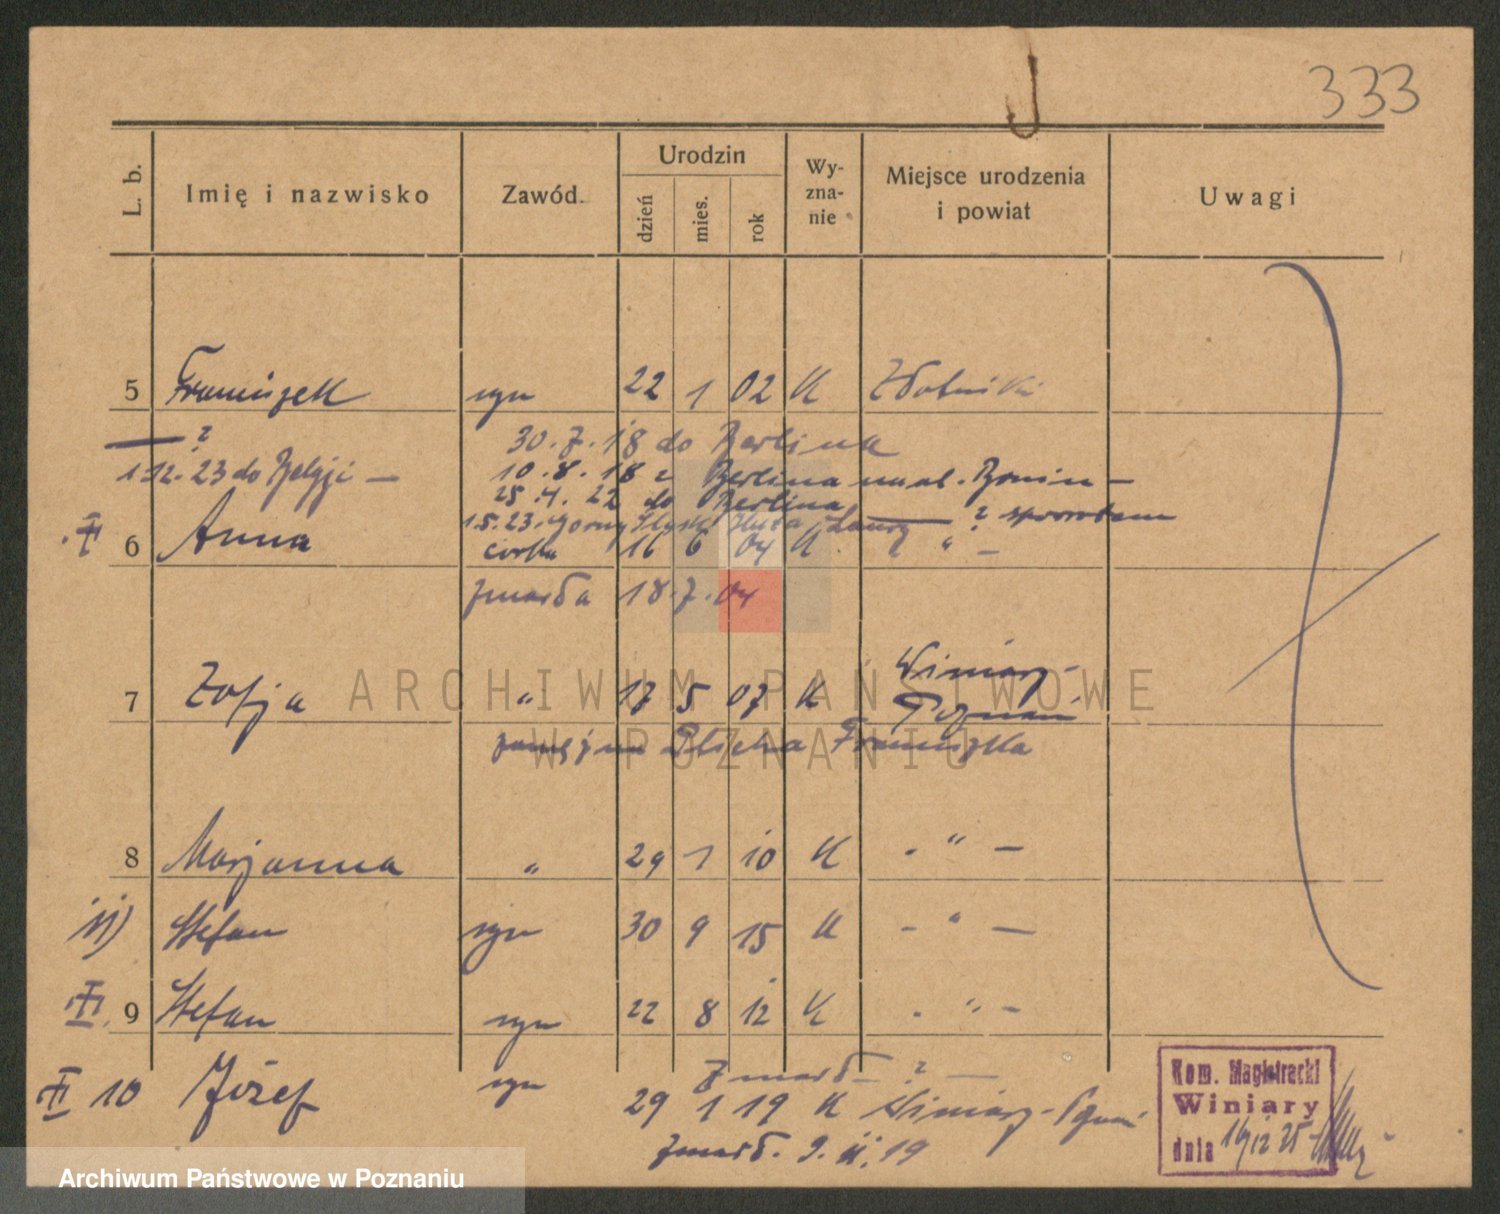 333
L. b. Imię i nazwisko Zawód. Urodzin dzień mies. rok Wy-zna-nie Miejsce urodzenia i powiat Uwagi
5 Franciszek syn 22 1 02 K
? 30.7.18 do Berlina
1.12.23 do Belgji — 10.8.18 z Berlina —
25.4.22 do Berlina — ?
1.5.23
6 Anna córka 16 6 04 K " —
zmarła 18.7.04
7 Zofja " 17 5 07 K Winiary-Poznań
zamężna Franciszka
8 Marjanna " 29 1 10 K - " —
11) Stefan syn 30 9 15 K - " —
9 Stefan syn 22 8 12 K - " -
zmarł — ? —
10 Józef syn 29 1 19 K Winiary-
zmarł. 9.II.19
Kom. Magistracki
Winiary
dnia
ARCHIWUM PAŃSTWOWE
W POZNANIU
Archiwum Państwowe w Poznaniu